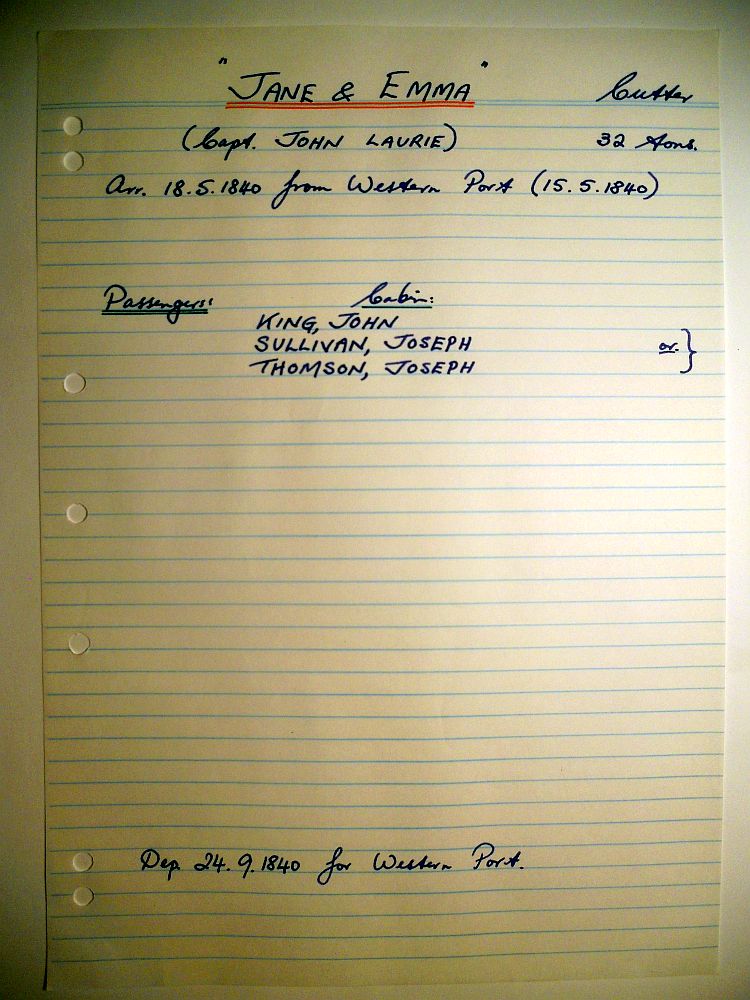 "JANE & EMMA" Cutter
(Capt. JOHN LAURIE) 32 Tons.
Arr. 18.5.1840 from Western Port (15.5.1840)
Passengers: Cabin:
KING, JOHN
SULLIVAN, JOSEPH or. }
THOMSON, JOSEPH
Dep. 24.9.1840 for Western Port.